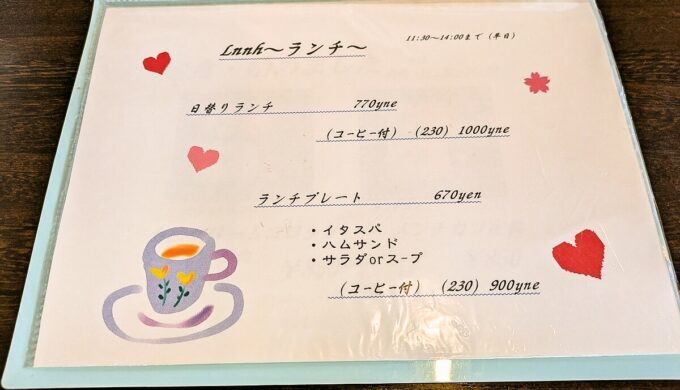 Lnnh～ランチ～
11:30～14:00まで (平日)
日替りランチ 770yne
(コーヒー付) (230) 1000yne
ランチプレート 670yen
・イタスパ
・ハムサンド
・サラダorスープ
(コーヒー付) (230) 900yne